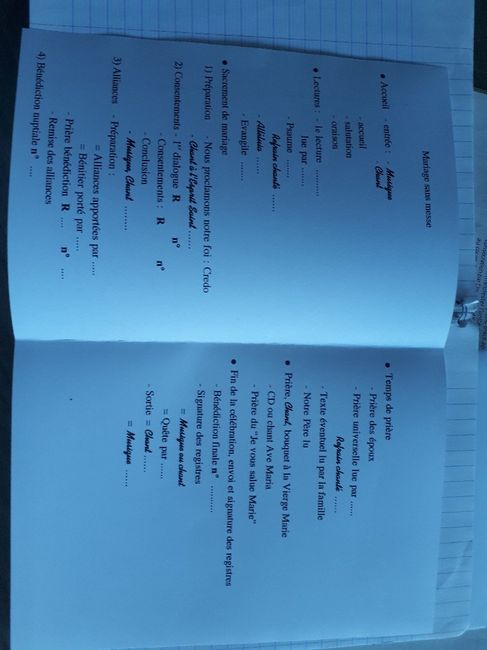 Mariage sans messe
● Accueil - entrée : - Musique
- Chant
- accueil
- salutation
- oraison
● Lectures : - 1e lecture ..........
lue par .......
- Psaume .......
Refrain chanté ......
- Alléluia ......
- Evangile .......
● Sacrement de mariage
1) Préparation - Nous proclamons notre foi : Credo
- Chant à l'Esprit Saint ......
2) Consentements - 1er dialogue R n°
- Consentements : R n°
- Conclusion
- Musique, Chant ........
3) Alliances - Préparation :
= Alliances apportées par .....
= Bénitier porté par .....
- Prière bénédiction R .... n° ....
- Remise des alliances
4) Bénédiction nuptiale n° ....
● Temps de prière
- Prière des époux
- Prière universelle lue par ......
Refrain chanté ......
- Texte éventuel lu par la famille
- Notre Père lu
● Prière, Chant, bouquet à la Vierge Marie
- CD ou chant Ave Maria
- Prière du "Je vous salue Marie"
● Fin de la célébration, envoi et signature des registres
- Bénédiction finale n° ..........
- Signature des registres
= Musique ou chant
= Quête par ......
- Sortie = Chant ......
= Musique ......